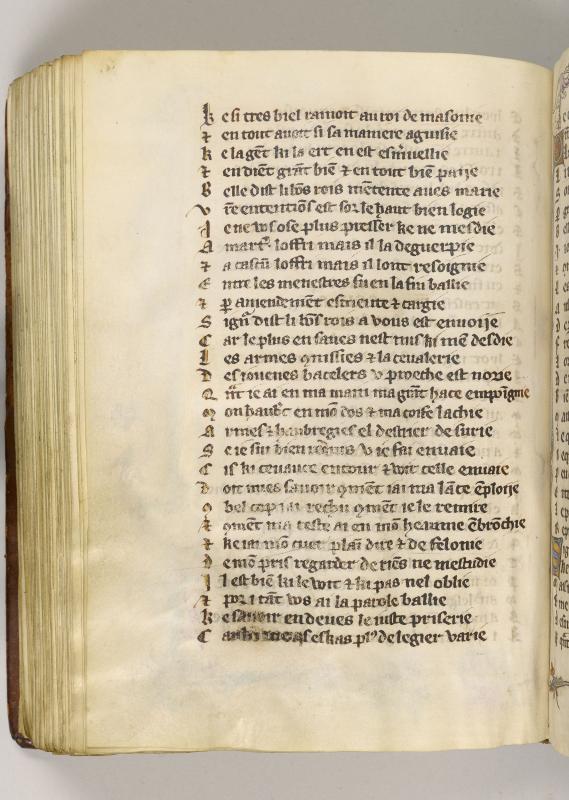 K e si tres biel ramoit au roi de masonie
⁊ en tout auoit si sa maniere aguisie
k e la gēt ki la ert en est esmuellie
⁊ en diēt grāt biē ⁊ en tout biē parie
B elle dist li bōs rois mētente aues marie
v r̄e entenciōs est sor le haut bien logie
J e ne vos ose plus presser ke ne mesdie
A marti loffri mais il la deguerpie
⁊ a casciū loffri mais il lont resoignie
E ntre les menestres fu en la fin baillie
⁊ ꝑ amendemēt escriente ⁊ cargie
S ign̄ dist li bōs rois a vous est enuoije
C ar le plus en saues nest nus ki mē desdie
L es armes ꝯnissies ⁊ la ceualerie
D es iouenes bacelers v proeche est norie
Q n̄t ie ai en ma main ma grāt hace empoignie
m on haubc̄ en mō dos ⁊ ma coife lachie
A rmes ⁊ haubregies el destrier de surie
S e ie sui bien v ie fai enuaie
C is ki ceuauce entour ⁊ voit celle enuaie
D oit mies sauoir ꝯmēt iai ma lāce ēploije
o bel cop iai rechu ꝯmēt ie le remire
⁊ ꝯmēt ma teste ai en mō heaume ēbrōchie
⁊ ke iai mō cuer plai dire ⁊ de felonie
D e mō pris regarder de riēs ne mestudie
J l est biē ki le voit ⁊ ki pas nel oblie
⁊ por i tāt vos ai la parole baillie
k e sauoir en deues le iuste priserie
C eskas pl9 de legier varie